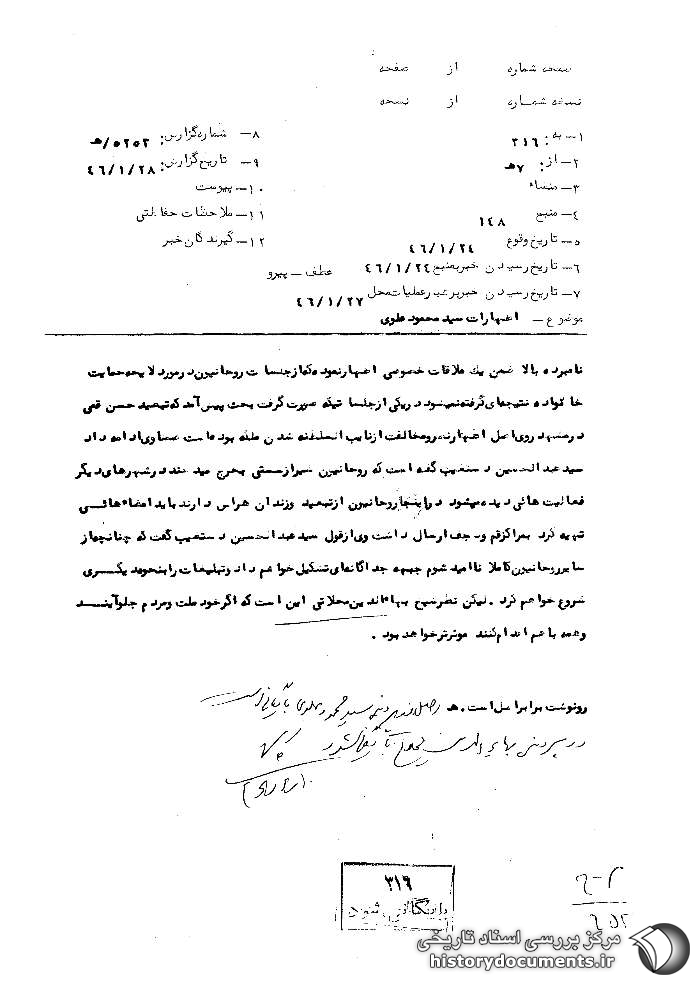 نسخه شماره از صفحه
نسخه شماره از نسخه
۱- به: ۳۱۶
۲- از: ۷ھ
۳- منشاء
٤- منبع ۱٤۸
۵- تاریخ وقوع ٤۶/۱/۲٤
۶- تاریخ رسیدن خبر بمنبع ٤۶/۱/۲٤
۷- تاریخ رسیدن خبر برهبر عملیات محل ٤۶/۱/۲۷
۸- شماره گزارش: ۵۲۵۲/ھ
۹- تاریخ گزارش: ٤۶/۱/۲۸
۱۰- پیوست
۱۱- ملاحظات حفاظتی
۱۲- گیرندگان خبر
عطف - پیرو
موضوع - اظهارات سید محمود علوی
نامبرده بالا ضمن یک ملاقات خصوصی اظهار نموده که از جلسات روحانیون در مورد لایحه حمایت
خانواده نتیجه‌ای گرفته نمیشود در یکی از جلساتیکه صورت گرفت بحث پیش آمد که تبعید حسن قمی
در مشهد روی اصل اظهارنامه و مخالفت از نایب السلطنه شدن ملکه بوده است علوی ادامه داد
سید عبدالحسین دستغیب گفته است که روحانیون شیراز سستی بخرج میدهند در شهرهای دیگر
فعالیت هائی دیده میشود در اینجا روحانیون از تبعید و زندان هراس دارند باید امضاء هائی
تهیه کرد بمراکز قم و نجف ارسال داشت وی از قول سید عبدالحسین دستغیب گفت که چنانچه از
سایر روحانیون کاملا ناامید شوم جبهه جداگانه‌ای تشکیل خواهم داد و تبلیغات را بنحو دیگری
شروع خواهم کرد. لیکن نظر شیخ بهاءالدین محلاتی این است که اگر خود ملت و مردم جلو آیند
و همه با هم اقدام کنند موثرتر خواهد بود.
رونوشت برابر اصل است. ھ
در پرونده بهاءالدین محلاتی
۳۱۶
بایگانی شود
مرکز بررسی اسناد تاریخی
historydocuments.ir